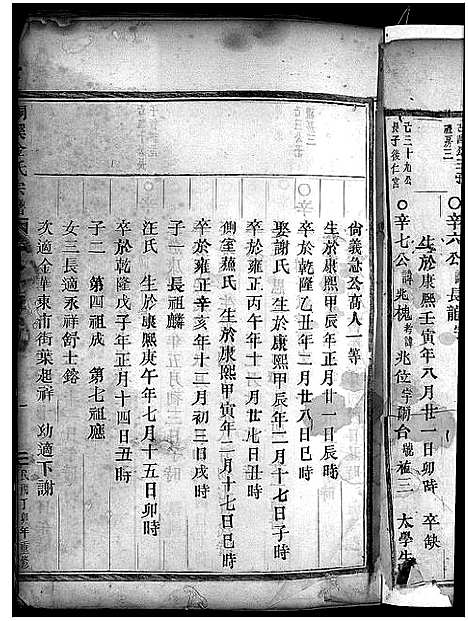 己三十九公
長子後仁宮
○辛六公
諱長龍
生於康熙壬寅年八月廿一日卯時 卒缺
○辛七公 諱兆槐 考諱兆位 字朝台 號福三 太學生
尙義急公高人一等
生於康熙甲辰年正月廿一日辰時
卒於乾隆乙丑年二月廿八日巳時
娶謝氏 生於康熙甲辰年二月十七日子時
卒於雍正丙午年十一月廿七日丑時
側室蕉氏 生於康熙甲寅年二月十七日巳時
卒於雍正辛亥年十二月初三日戌時
子一 長祖麟
汪氏 生於康熙庚午年七月十五日卯時
卒於乾隆戊子年正月十四日丑時
子二 第四祖成 第七祖應
女三 長適永祥舒士鎔
次適金華東市街葉起祥 幼適下謝